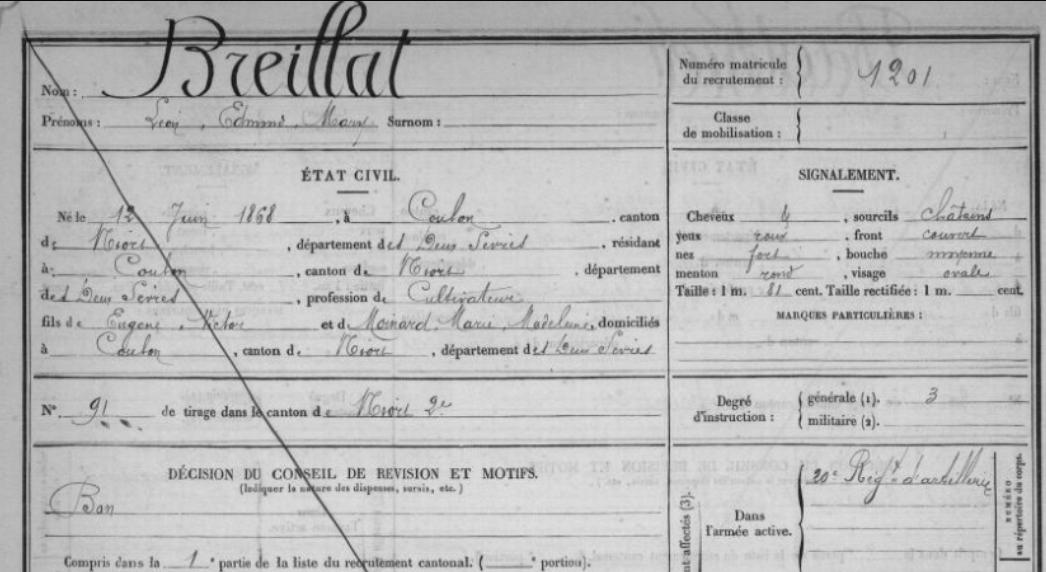 Nom : Breillat
Prénoms : Léon, Edmond, Mary Surnom :
Numéro matricule
du recrutement : 1201
Classe
de mobilisation :
ÉTAT CIVIL.
Né le 12 Juin 1868, à Coulon, canton
de Niort, département des Deux Sèvres, résidant
à Coulon, canton de Niort, département
des Deux Sèvres, profession de Cultivateur
fils de Eugène, Victor et de Moinard, Marie, Madeleine, domiciliés
à Coulon, canton de Niort, département des Deux Sèvres
SIGNALEMENT.
Cheveux, sourcils châtains
yeux roux, front couvert
nez fort, bouche moyenne
menton rond, visage ovale
Taille : 1 m. 81 cent. Taille rectifiée : 1 m. cent.
MARQUES PARTICULIÈRES :
N° 91 de tirage dans le canton de Niort 2e
Degré
d'instruction :
générale (1). 3
militaire (2).
DÉCISION DU CONSEIL DE REVISION ET MOTIFS.
(Indiquer la nature des dispenses, sursis, etc.)
Bon
Compris dans la 1e partie de la liste du recrutement cantonal. ( e portion).
Dans
l'armée active.
20e Régt d'artillerie
NUMÉRO
au répertoire du corps.
nt affectés (3).